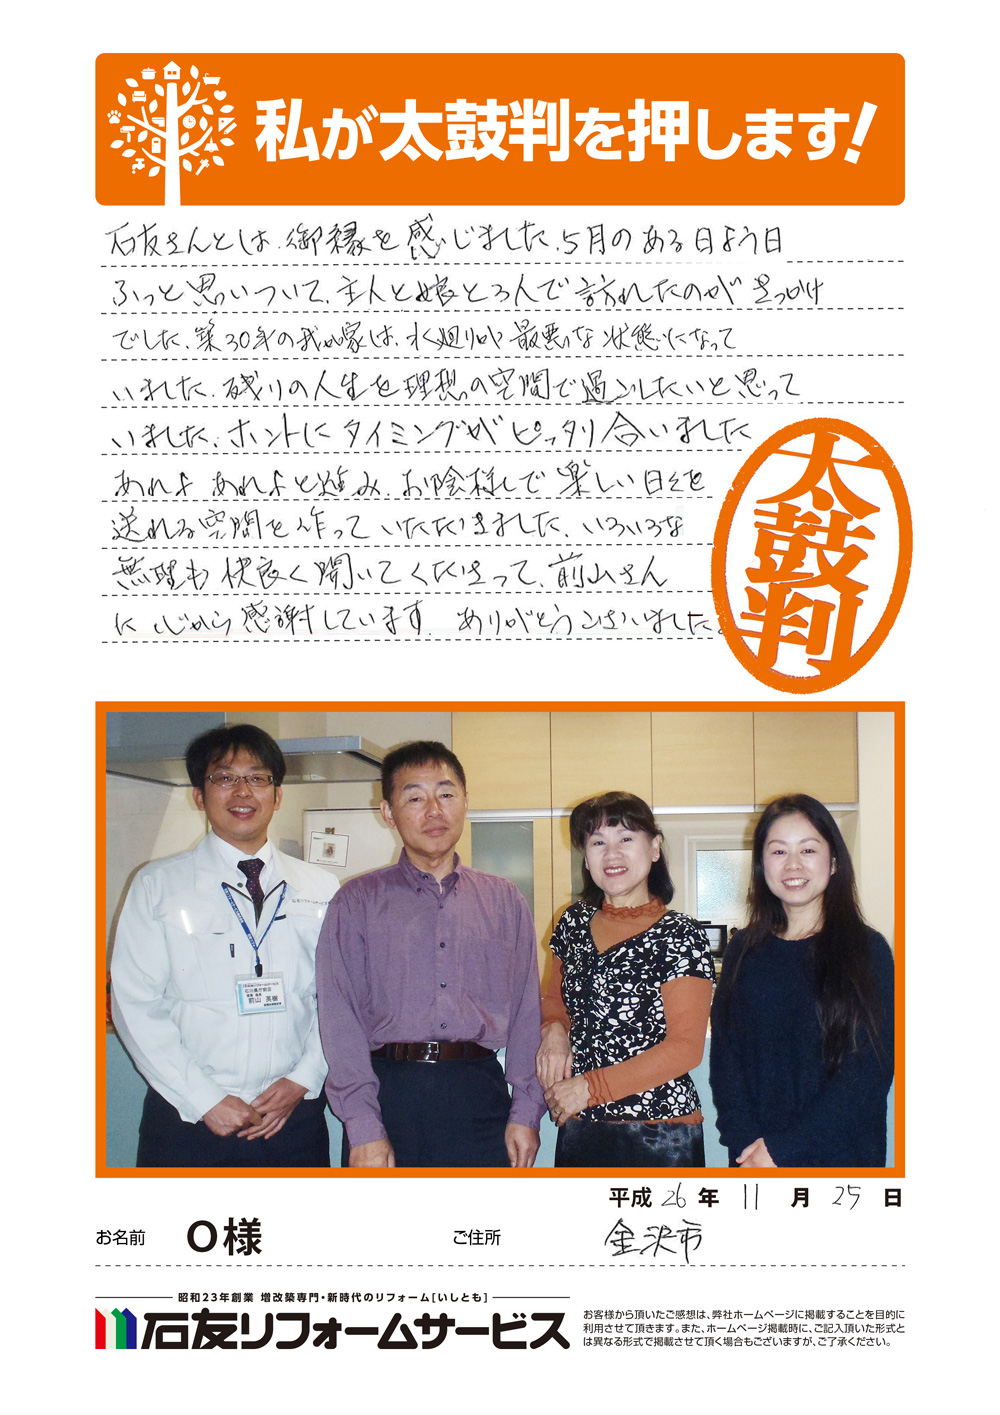 私が太鼓判を押します!
石友さんとは、御縁を感じました、5月のある日よう日
ふっと思いついて、主人と娘と3人で訪れたのがきっかけ
でした、築30年の我が家は、水廻りが最悪な状態になって
いました、残りの人生を理想の空間で過ごしたいと思って
いました、ホントにタイミングがピッタリ合いました
あれよあれよと進み、お陰様で楽しい日々を
送れる空間を作っていただきました、いろいろな
無理も快良く聞いてくださって、前山さん
に心から感謝しています。ありがとうございました。
太鼓判
石友リフォームサービス
石川県庁前店
前山 英樹
平成 26 年 11 月 25 日
お名前 O様 ご住所 金沢市
昭和23年創業 増改築専門・新時代のリフォーム[いしとも]
石友リフォームサービス
お客様から頂いたご感想は、弊社ホームページに掲載することを目的に
利用させて頂きます。また、ホームページ掲載時に、ご記入頂いた形式と
は異なる形式で掲載させて頂く場合もございますが、ご了承ください。